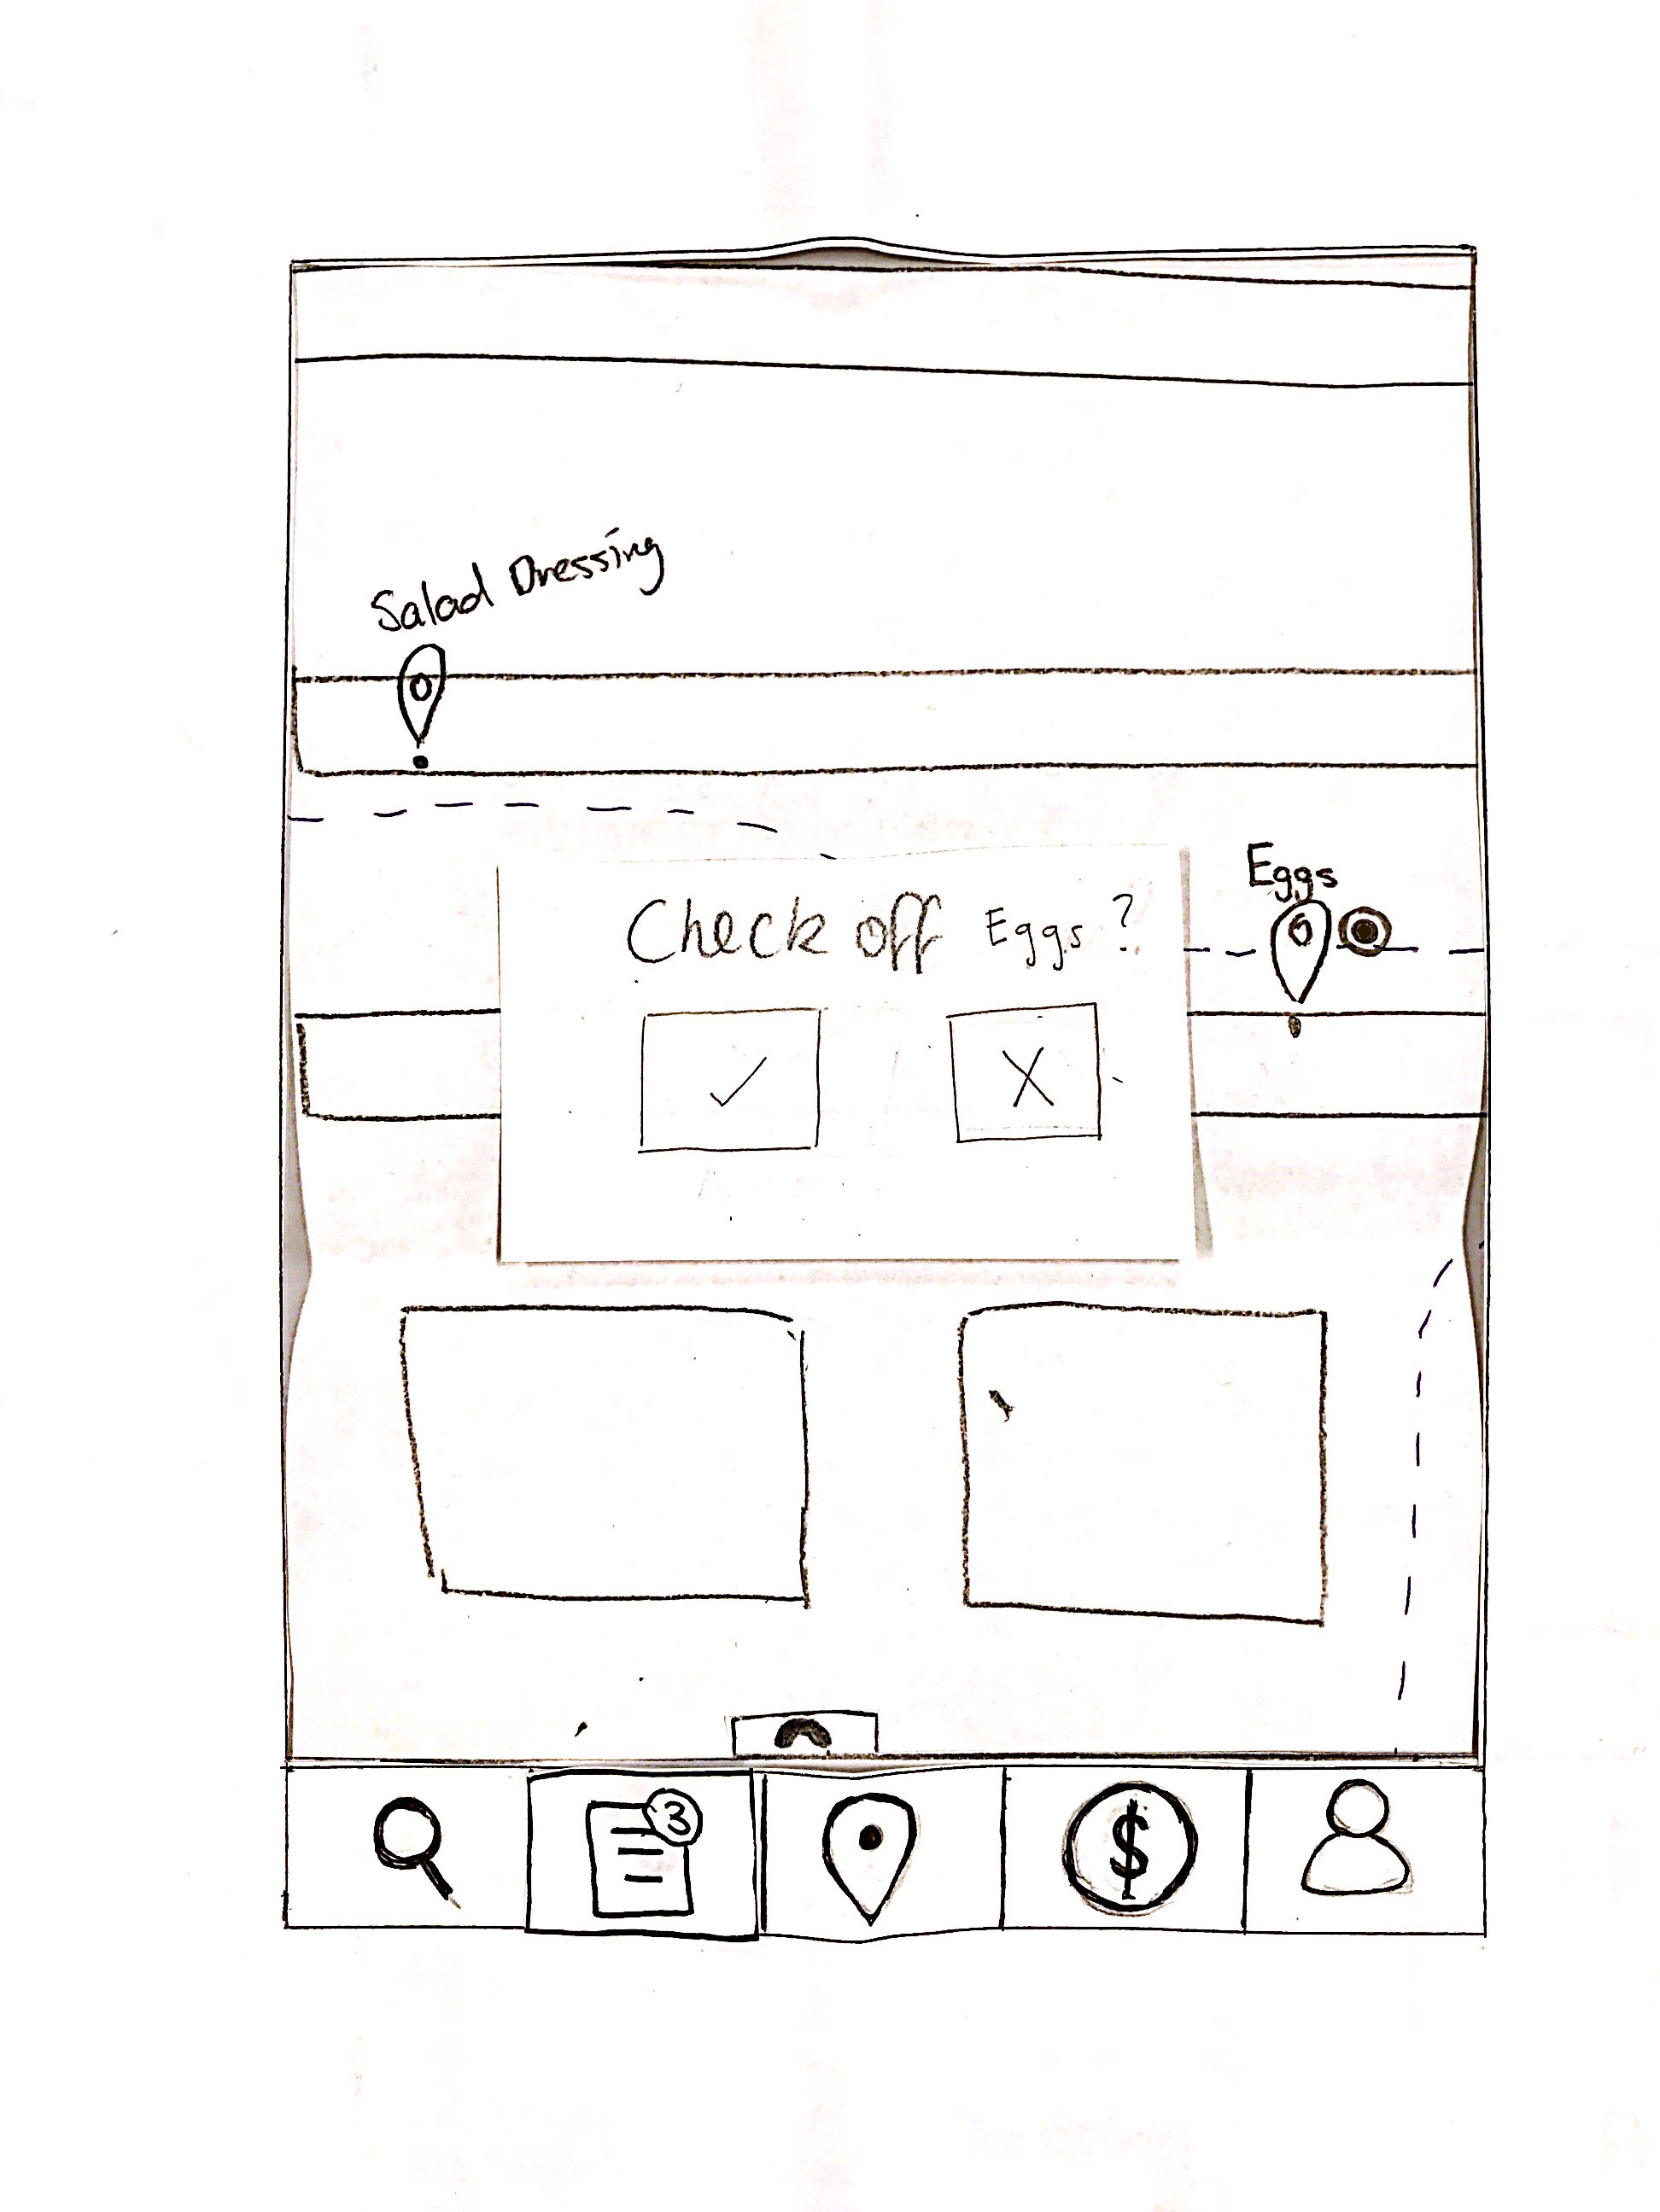 Salad Dressing
Eggs
Check off Eggs?
✓ X
3
$